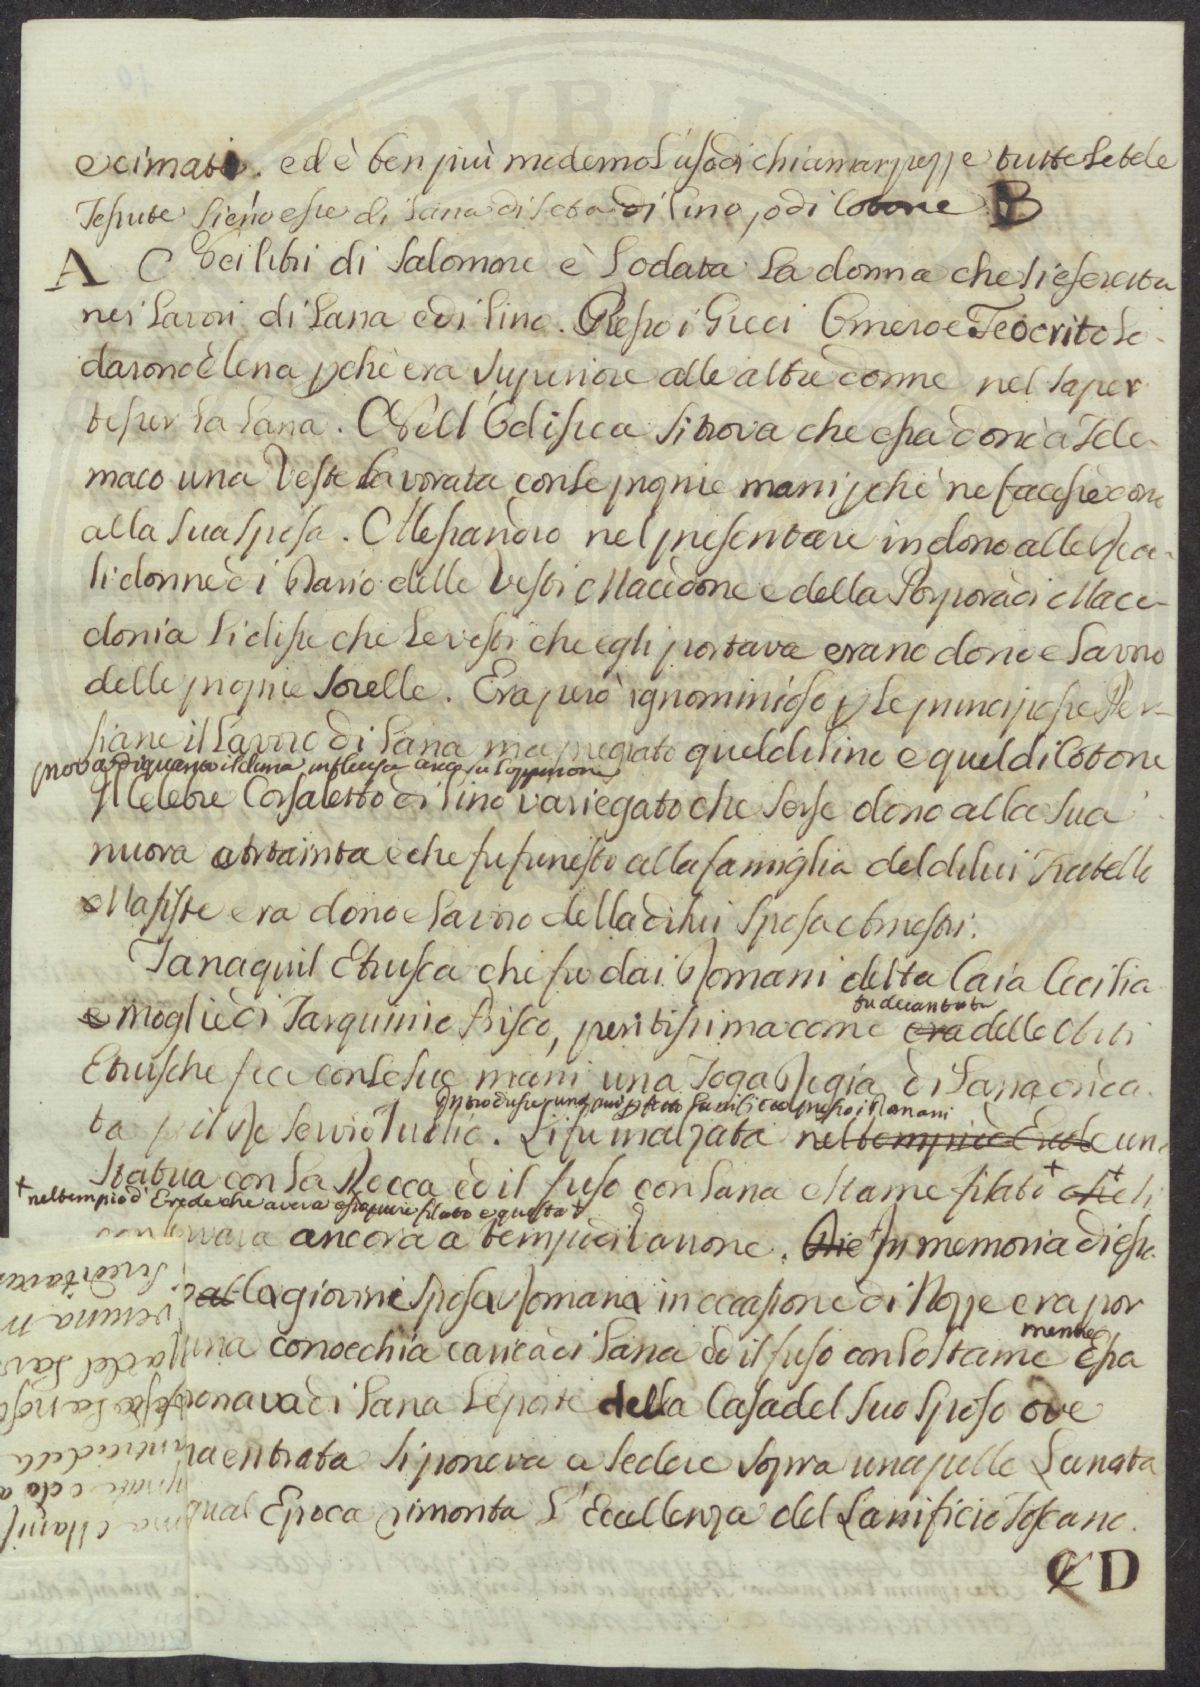 e cimati. ed è ben più moderno l'uso di chiamar pezze tutte le tele
Tessute sieno esse di lana di seta di lino, o di Cotone B
A Nei libri di Salomone è Lodata La donna che si esercita
nei Lavori di Lana e di lino. Presso i Greci Omero e Teocrito Lo-
darono Elena pchè era Superiore alle altre donne nel saper
tesser La Lana. Nell'Odissea si trova che essa donò a Tele-
maco una Veste Lavorata con le proprie mani pchè ne facesse dono
alla sua sposa. Alessandro nel presentare in dono alle Rea-
li donne di Dario delle Vesti Macedone e della Porpora di Mace-
donia li disse che Le vesti che egli portava erano dono e Lavoro
delle proprie Sorelle. Era però ignominioso p Le principesse Per-
siane il Lavoro di Lana ma pregiato quel di lino e quel di Cotone
prova di quanto il clima influisca anco su l'opinione
Il Celebre Corsaletto di lino variegato che Serse donò alla sua
nuora Artainta e che fu funesto alla famiglia del di lui Fratello
Masiste era dono e Lavoro della di lui Sposa Amestri.
Tanaquil Etrusca che fu dai Romani detta Caia Cecilia
e moglie di Tarquinio Prisco, peritissima come era delle Arti
fu decantata
Etrusche fece con le sue mani una Toga Regia di Lana
ta p il Re Servio Tullio. Li fu inalzata nel tempio d'Ercole un
Introdusse una più pfetto Lanificio presso i Romani
Statua con La Rocca ed il fuso con Lana e stame filati + che +
+ nel tempio d' Ercole che aveva essa pure filato e questa +
ancora a tempi di Varrone. Die In memoria di essa
alla giovine Sposa Romana in occasione di Nozze era por
una conocchia carica di Lana ed il fuso con lo stame Essa
mentre
di Lana Le porte della Casa del Suo Sposo ove
entrata si poneva a sedere sopra una pelle Lanata
qual Epoca rimonta L'Eccellenza del Lanificio Toscano.
C D